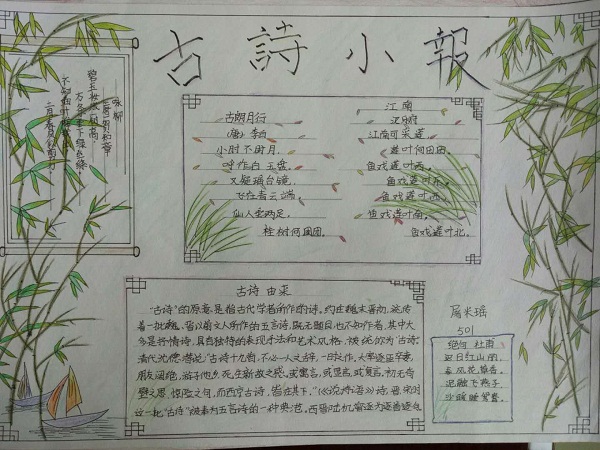 古詩小報
咏柳
碧玉妆成一树高
万条垂下绿丝绦
不知细叶谁裁出
二月春风似剪刀
古朗月行
(唐) 李白
小时不识月,
呼作白玉盘。
又疑瑶台镜,
飞在青云端。
仙人垂两足,
桂树何团团。
江南
汉乐府
江南可采莲
莲叶何田田。
鱼戏莲叶间。
鱼戏莲叶东。
鱼戏莲叶西。
鱼戏莲叶南。
鱼戏莲叶北。
古诗 由来
"古诗"的原意是指古代学者所作的诗。约在魏末晋初,流传
着一批魏、晋以前文人所作的五言诗,既无题目,也不知作者,其中大
多是抒情诗,具有独特的表现手法和艺术风格,被统称为"古诗"
清代沈德潜说"古诗十九首,不必一人之辞,一时之作。大率逐臣弃妻,
朋友阔绝,游子他乡,死生新故之感。或寓言,或显言,或复言。初无奇
辟之思,惊险之句。而西京古诗,皆在其下。"(《说诗晬语》)
这一批"古诗"被奉为五言诗的一种典范。
501
绝句 杜甫
迟日江山丽,
春风花草香。
泥融飞燕子,
沙暖睡鸳鸯。